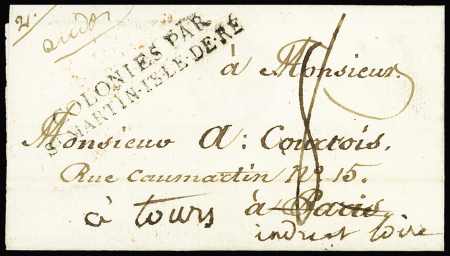 2.
COLONIES PAR
ST MARTIN-ISLE-DE-RÉ
à Monsieur
Monsieur A: Courtois,
Rue Caumartin No 15.
à Paris
à tours
indre et loire